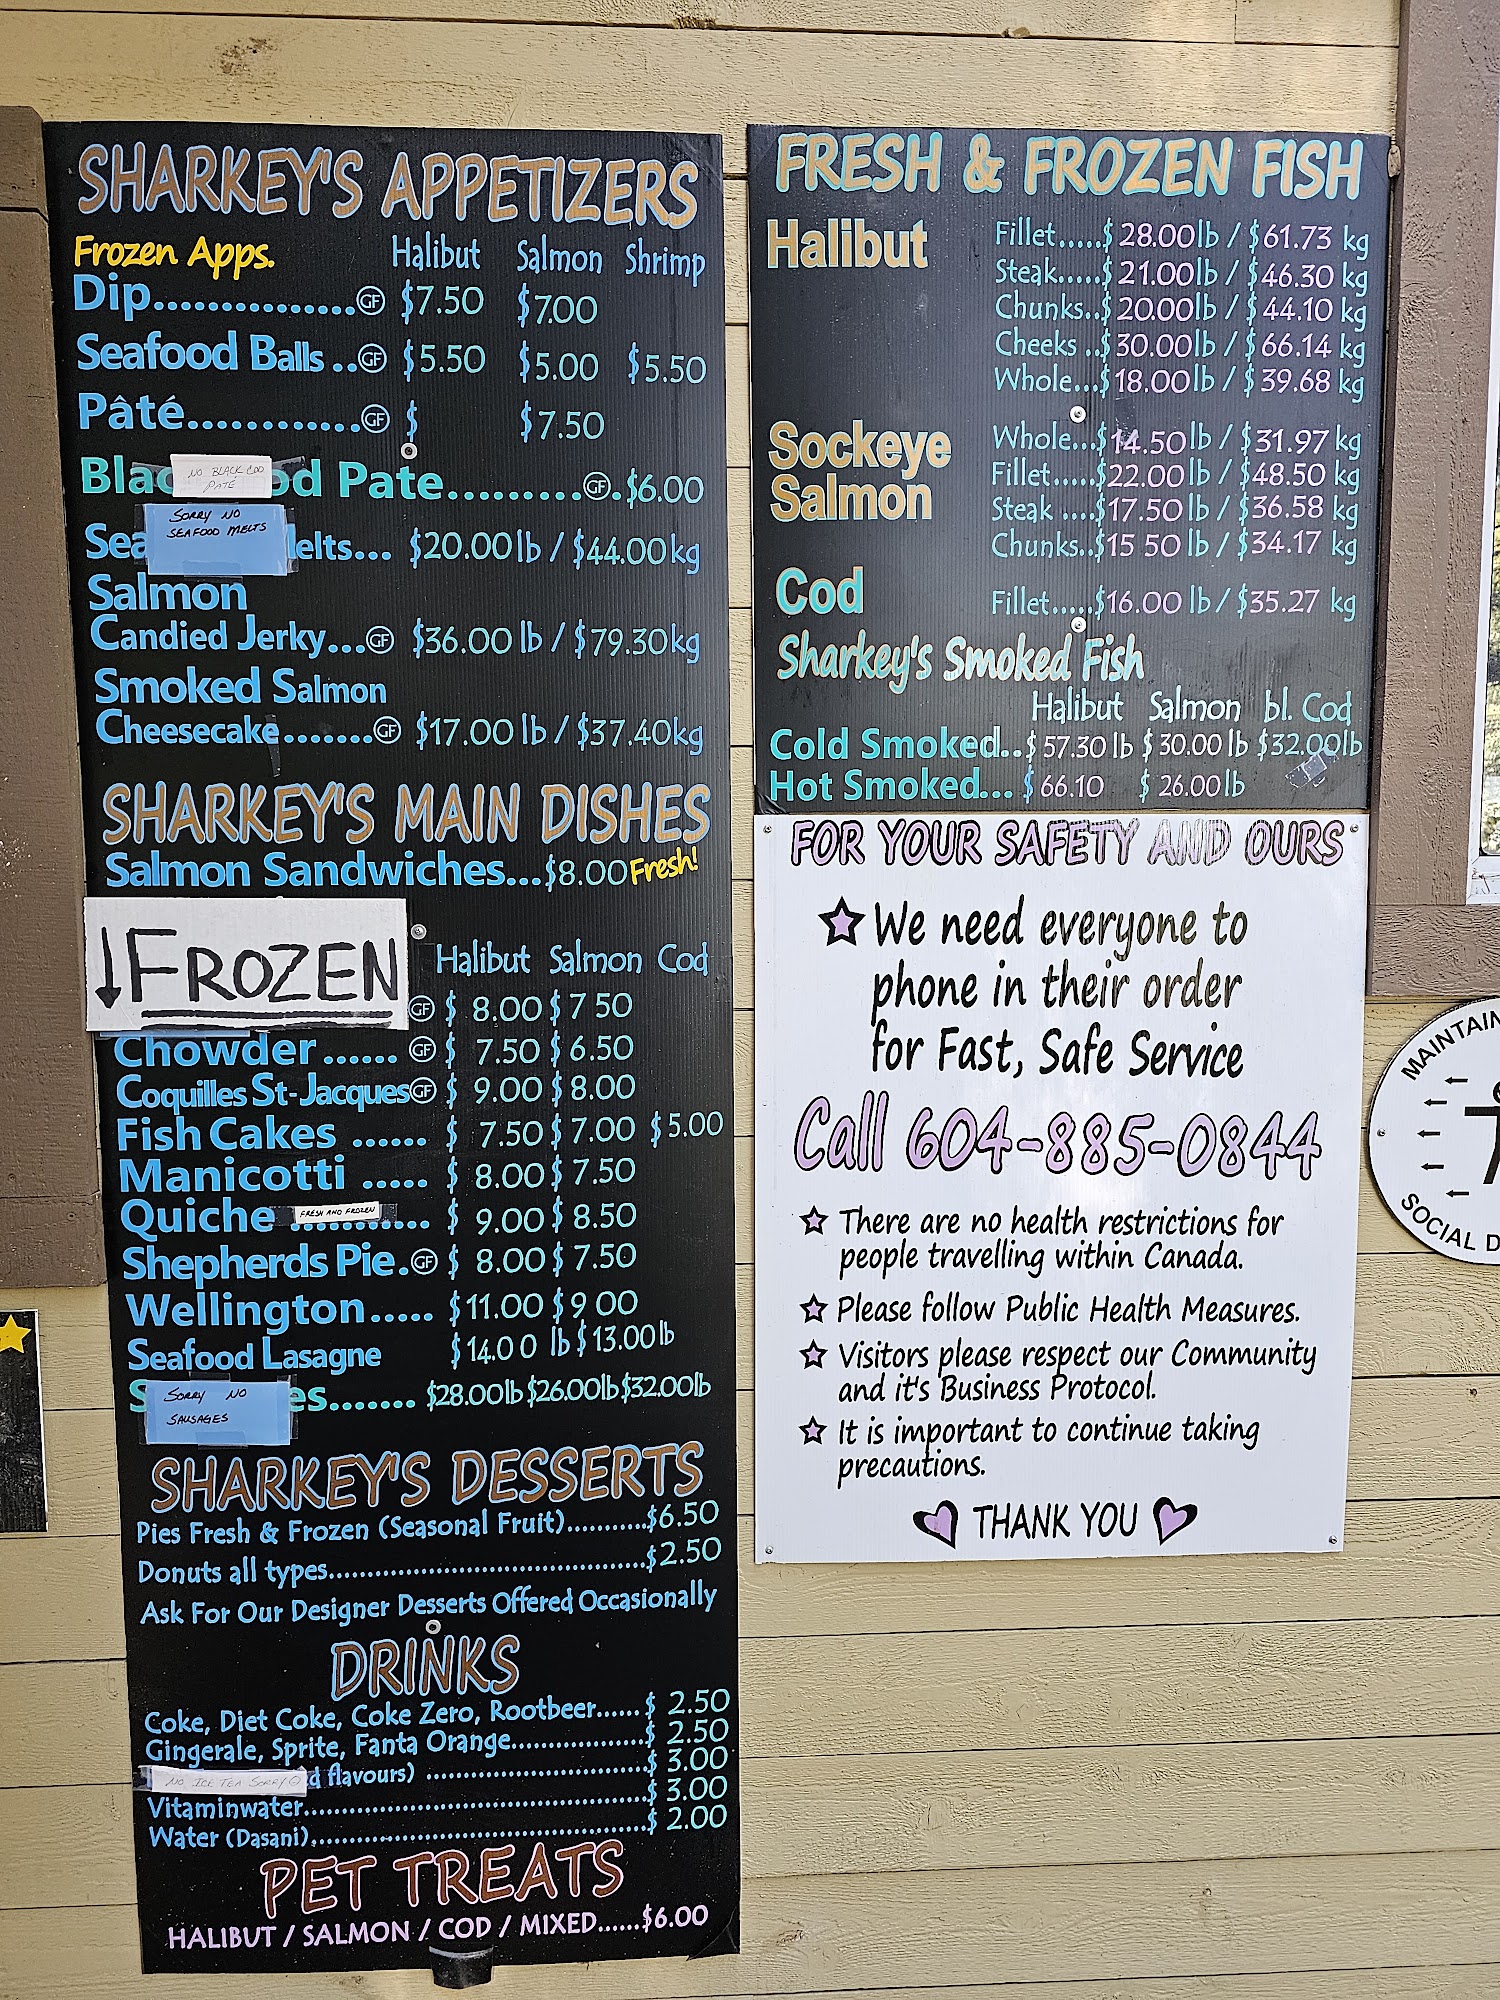 SHARKEY'S APPETIZERS
Frozen Apps. Halibut Salmon Shrimp
Dip...............GF $7.50 $7.00
Seafood Balls ..GF $5.50 $5.00 $5.50
Pâté.............GF $ $7.50
NO BLACK COD
PATÉ
Blac od Pate..........GF. $6.00
SORRY NO
SEAFOOD MELTS
Sea elts... $20.00 lb / $44.00 kg
Salmon
Candied Jerky...GF $36.00 lb / $79.30 kg
Smoked Salmon
Cheesecake.......GF $17.00 lb / $37.40 kg
SHARKEY'S MAIN DISHES
Salmon Sandwiches...$8.00 Fresh!
↓FROZEN
Halibut Salmon Cod
GF $ 8.00 $ 7 50
Chowder...... GF $ 7.50 $ 6.50
Coquilles St-Jacques GF $ 9.00 $ 8.00
Fish Cakes ...... $ 7.50 $ 7.00 $ 5.00
Manicotti ..... $ 8.00 $ 7.50
Quiche FRESH AND FROZEN ... $ 9.00 $ 8.50
Shepherds Pie.GF $ 8.00 $ 7.50
Wellington..... $11.00 $ 9 00
Seafood Lasagne $14.00 lb $13.00 lb
SORRY NO
SAUSAGES
S es....... $28.00lb $26.00lb $32.00lb
SHARKEY'S DESSERTS
Pies Fresh & Frozen (Seasonal Fruit)...........$6.50
Donuts all types..........................................$2.50
Ask For Our Designer Desserts Offered Occasionally
DRINKS
Coke, Diet Coke, Coke Zero, Rootbeer......$ 2.50
Gingerale, Sprite, Fanta Orange...................$ 2.50
NO ICE TEA SORRY
d flavours) ...............................$ 3.00
Vitaminwater................................................$ 3.00
Water (Dasani)...............................................$ 2.00
PET TREATS
HALIBUT / SALMON / COD / MIXED......$6.00
FRESH & FROZEN FISH
Halibut Fillet.....$ 28.00lb / $61.73 kg
Steak.....$ 21.00lb / $46.30 kg
Chunks..$ 20.00lb / $44.10 kg
Cheeks ..$ 30.00lb / $66.14 kg
Whole...$ 18.00lb / $39.68 kg
Sockeye
Salmon
Whole...$14.50lb / $31.97 kg
Fillet.....$22.00 lb / $48.50 kg
Steak ....$17.50 lb / $36.58 kg
Chunks..$15 50 lb / $34.17 kg
Cod Fillet.....$16.00 lb / $35.27 kg
Sharkey's Smoked Fish
Halibut Salmon bl. Cod
Cold Smoked..$ 57.30 lb $ 30.00 lb $32.00lb
Hot Smoked... $ 66.10 $ 26.00lb
FOR YOUR SAFETY AND OURS
We need everyone to
phone in their order
for Fast, Safe Service
Call 604-885-0844
There are no health restrictions for
people travelling within Canada.
Please follow Public Health Measures.
Visitors please respect our Community
and it's Business Protocol.
It is important to continue taking
precautions.
THANK YOU
MAINTAIN
SOCIAL D